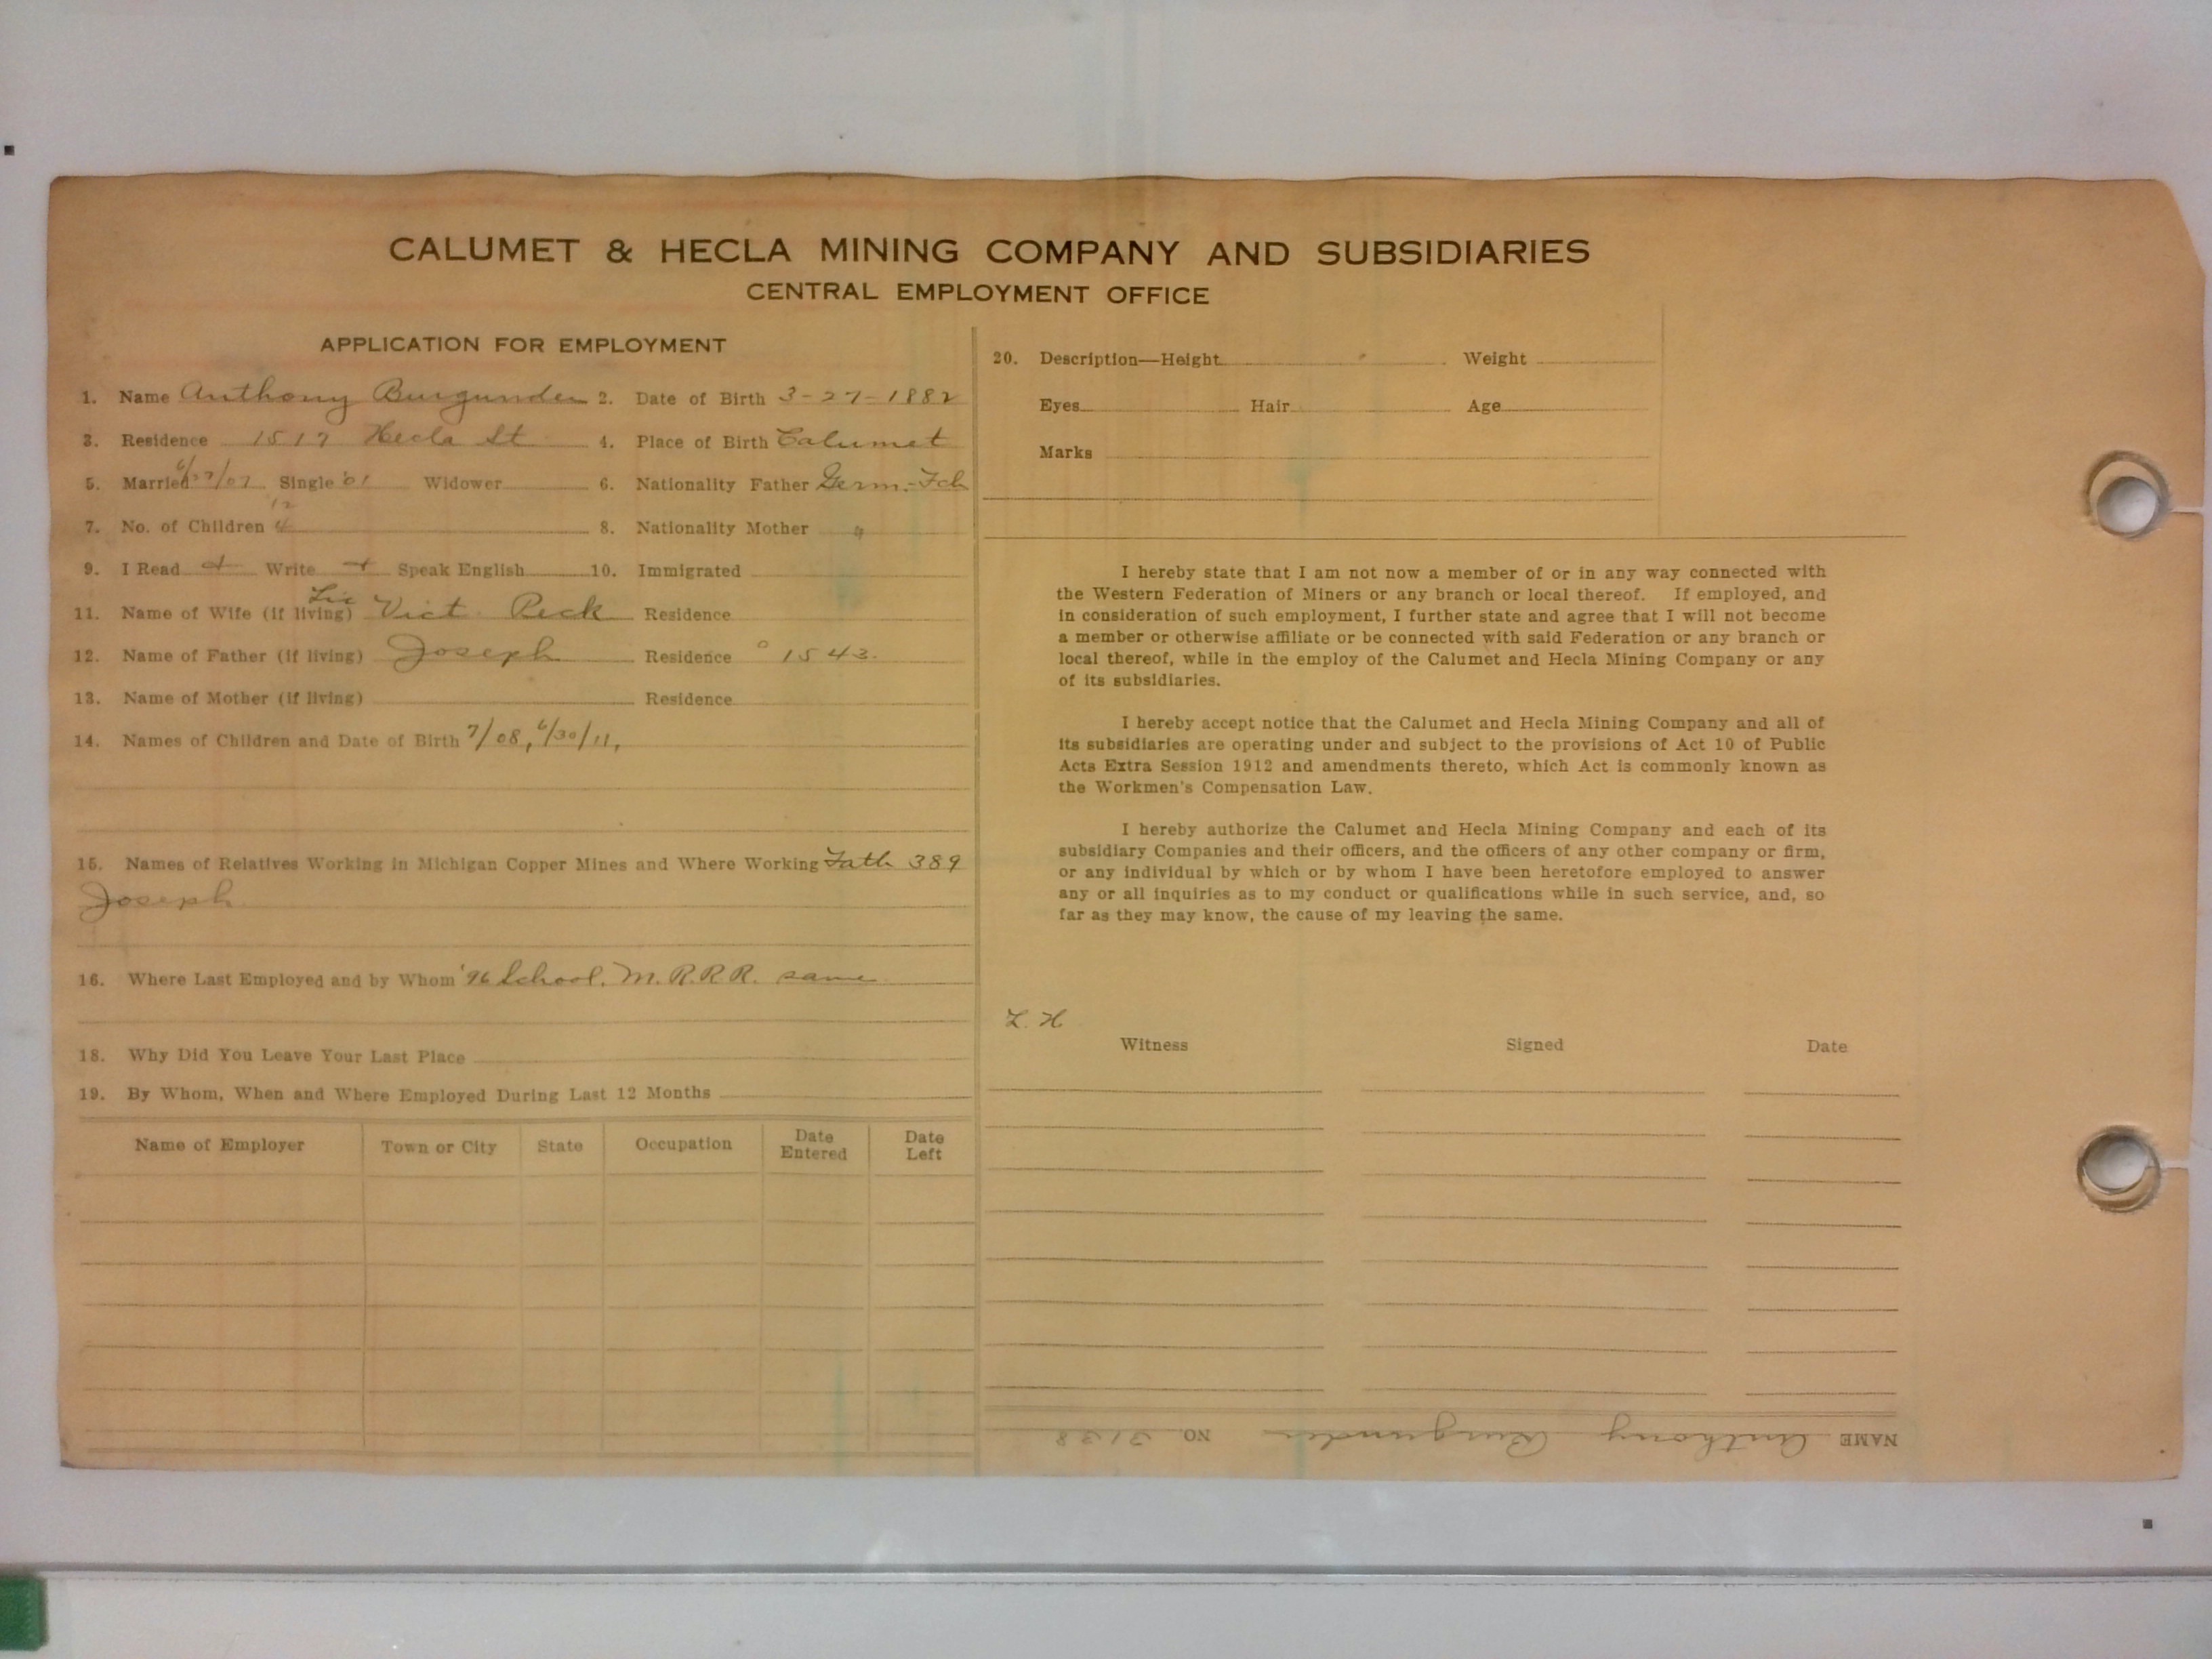 CALUMET & HECLA MINING COMPANY AND SUBSIDIARIES
CENTRAL EMPLOYMENT OFFICE
APPLICATION FOR EMPLOYMENT
1. Name Anthony Burgunder 2. Date of Birth 3-27-1882
3. Residence 1517 Hecla St 4. Place of Birth Calumet
5. Married 6/27/07 Single '01 Widower 6. Nationality Father Germ.-Fch
12
7. No. of Children 4 8. Nationality Mother "
9. I Read + Write + Speak English 10. Immigrated
11. Name of Wife (if living) Vict. Peck Residence
12. Name of Father (if living) Joseph Residence 1543.
13. Name of Mother (if living) Residence
14. Names of Children and Date of Birth 7/08, 6/30/11,
15. Names of Relatives Working in Michigan Copper Mines and Where Working Fath 389
Joseph
16. Where Last Employed and by Whom '96 School. M.R.R.R. same
18. Why Did You Leave Your Last Place
19. By Whom, When and Where Employed During Last 12 Months
Name of Employer Town or City State Occupation Date Entered Date Left
20. Description—Height Weight
Eyes Hair Age
Marks
I hereby state that I am not now a member of or in any way connected with
the Western Federation of Miners or any branch or local thereof. If employed, and
in consideration of such employment, I further state and agree that I will not become
a member or otherwise affiliate or be connected with said Federation or any branch or
local thereof, while in the employ of the Calumet and Hecla Mining Company or any
of its subsidiaries.
I hereby accept notice that the Calumet and Hecla Mining Company and all of
its subsidiaries are operating under and subject to the provisions of Act 10 of Public
Acts Extra Session 1912 and amendments thereto, which Act is commonly known as
the Workmen's Compensation Law.
I hereby authorize the Calumet and Hecla Mining Company and each of its
subsidiary Companies and their officers, and the officers of any other company or firm,
or any individual by which or by whom I have been heretofore employed to answer
any or all inquiries as to my conduct or qualifications while in such service, and, so
far as they may know, the cause of my leaving the same.
Z. H
Witness Signed Date
NAME Anthony Burgunder NO. 3138